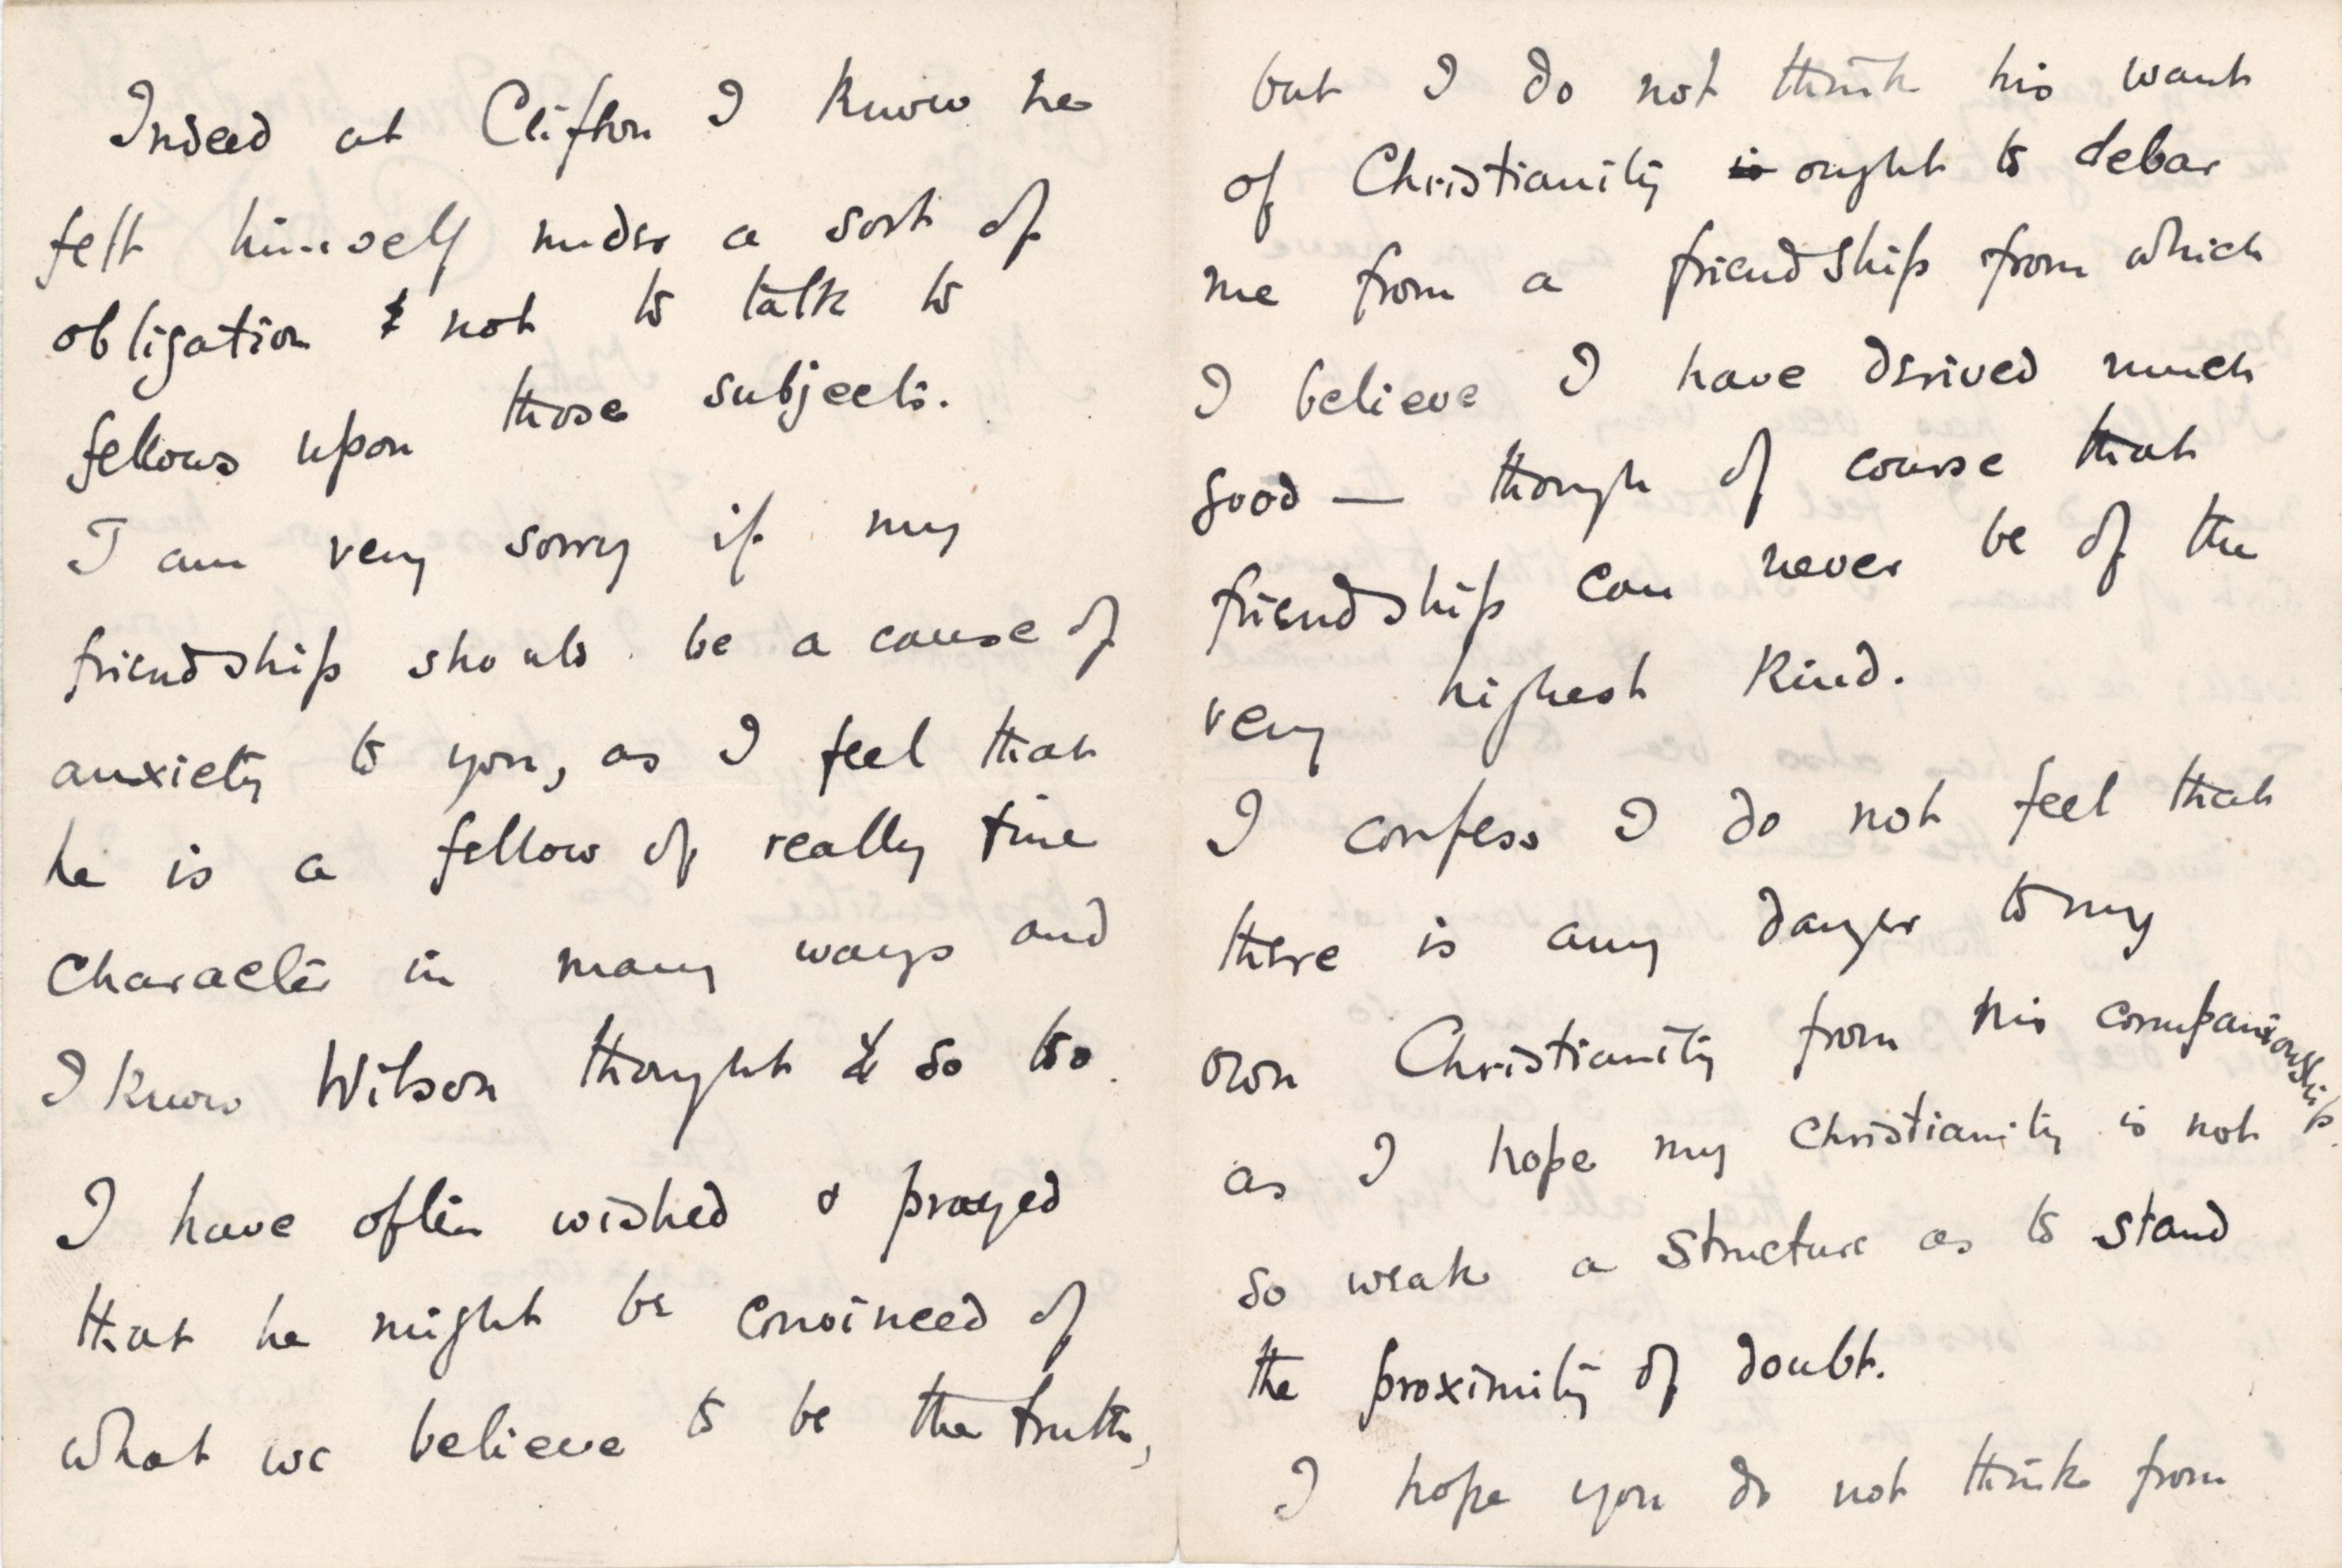 Indeed at Clifton I know he
felt himself under a sort of
obligation not to talk to
fellows upon those subjects.
I am very sorry if my
friendship should be a cause of
anxiety to you, as I feel that
he is a fellow of really fine
character in many ways and
I know Wilson thought so too.
I have often wished & prayed
that he might be convinced of
what we believe to be the truth,
but I do not think his want
of Christianity is ought to debar
me from a friendship from which
I believe I have derived much
good — though of course that
friendship can never be of the
very highest kind.
I confess I do not feel that
there is any danger to my
own Christianity from his companionship.
as I hope my Christianity is not
so weak a structure as to stand
the proximity of doubt.
I hope you do not think from